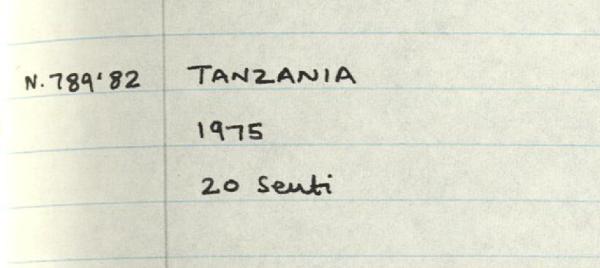 N.789'82 TANZANIA
1975
20 Senti